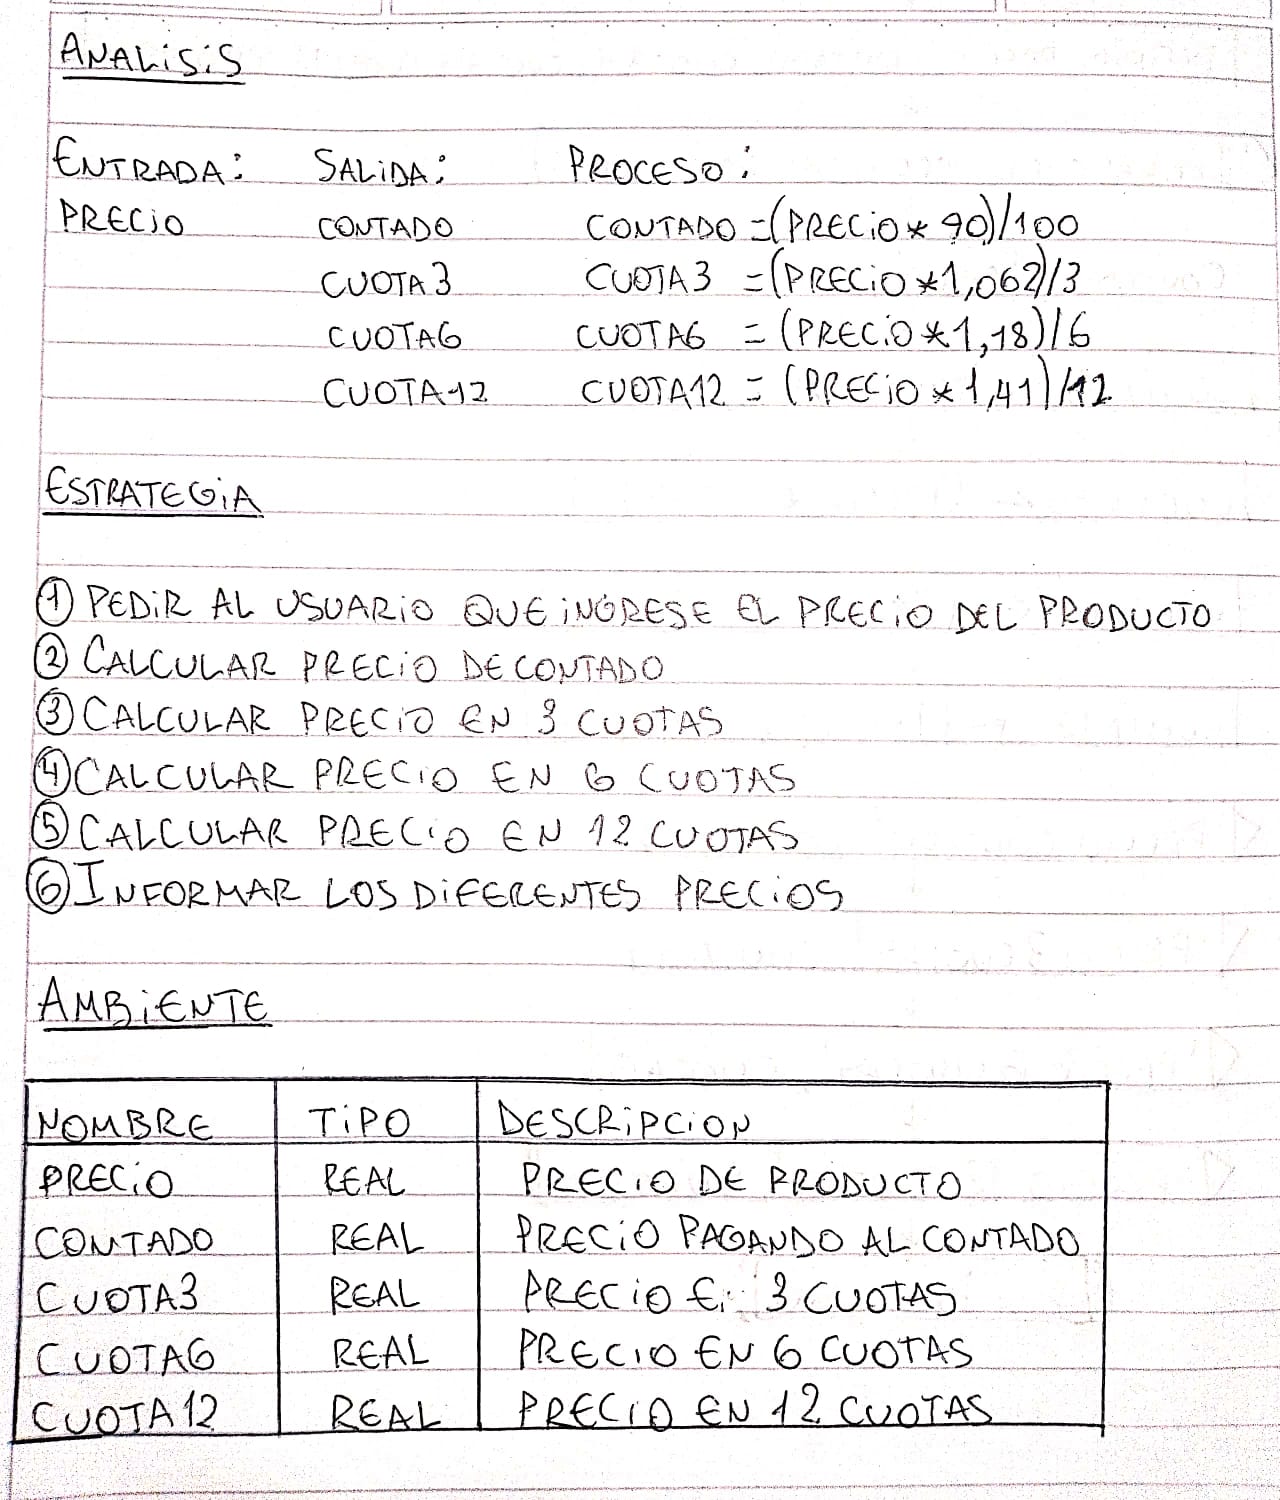 ANALISIS
ENTRADA: SALIDA: PROCESO:
PRECIO CONTADO CONTADO =(PRECIO * 90)/100
CUOTA3 CUOTA3 =(PRECIO *1,062)/3
CUOTA6 CUOTA6 = (PRECIO *1,18)/6
CUOTA12 CUOTA12 = (PRECIO * 1,41)/12
ESTRATEGIA
① PEDIR AL USUARIO QUE INGRESE EL PRECIO DEL PRODUCTO
② CALCULAR PRECIO DE CONTADO
③ CALCULAR PRECIO EN 3 CUOTAS
④ CALCULAR PRECIO EN 6 CUOTAS
⑤ CALCULAR PRECIO EN 12 CUOTAS
⑥ INFORMAR LOS DIFERENTES PRECIOS
AMBIENTE
NOMBRE TIPO DESCRIPCION
PRECIO REAL PRECIO DE PRODUCTO
CONTADO REAL PRECIO PAGANDO AL CONTADO
CUOTA3 REAL PRECIO 3 CUOTAS
CUOTA6 REAL PRECIO EN 6 CUOTAS
CUOTA12 REAL PRECIO EN 12 CUOTAS